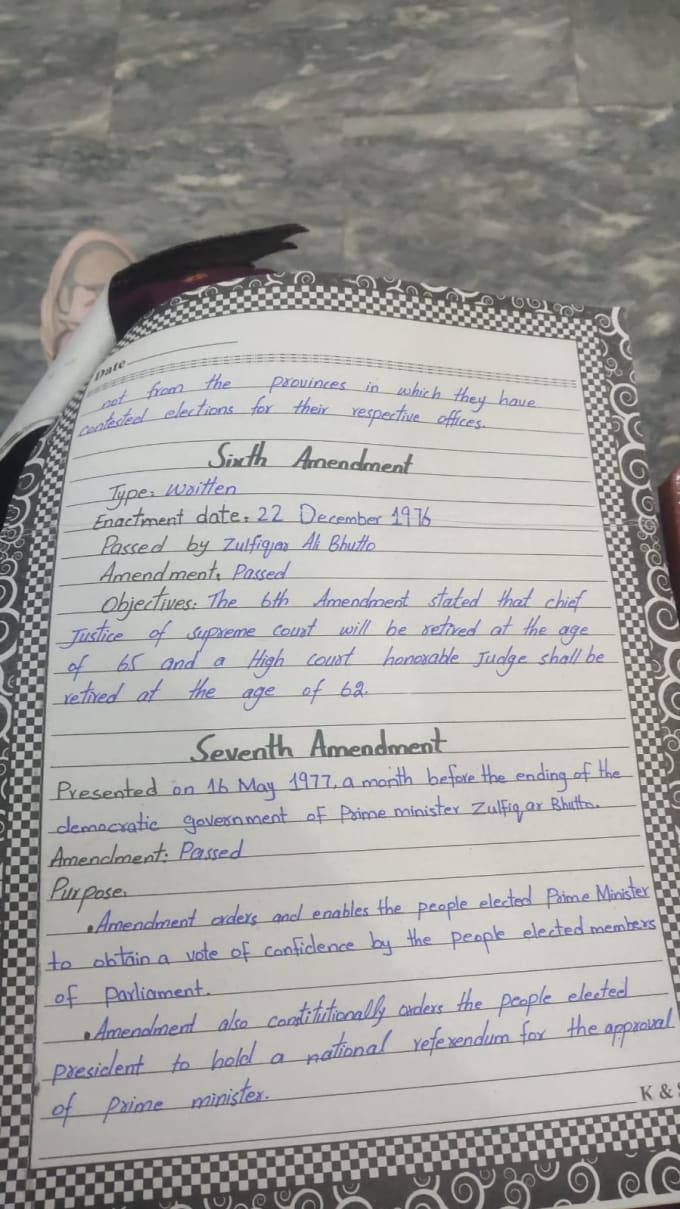 Date
not from the provinces in which they have
contested elections for their respective offices.
Sixth Amendment
Type: Written
Enactment date: 22 December 1976
Passed by Zulfiqar Ali Bhutto
Amendment: Passed
Objectives: The 6th Amendment stated that chief
Justice of supreme court will be retired at the age
of 65 and a High court honorable Judge shall be
retired at the age of 62.
Seventh Amendment
Presented on 16 May 1977, a month before the ending of the
democratic government of Prime minister Zulfiqar Bhutto.
Amendment: Passed
Purpose:
• Amendment orders and enables the people elected Prime Minister
to obtain a vote of confidence by the people elected members
of parliament.
• Amendment also constitutionally orders the people elected
president to hold a national referendum for the approval
of prime minister.
K &